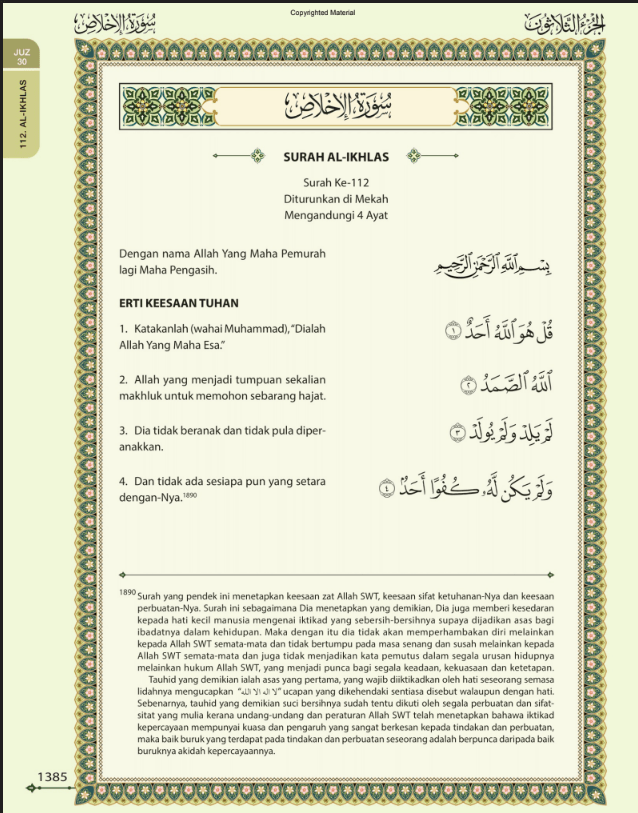 Copyrighted Material
سُورَةُ الإِخْلَاص
الجزء الثلاثون
JUZ
30
112. AL-IKHLAS
سُورَةُ الإِخْلَاص
SURAH AL-IKHLAS
Surah Ke-112
Diturunkan di Mekah
Mengandungi 4 Ayat
Dengan nama Allah Yang Maha Pemurah
lagi Maha Pengasih.
بِسْمِ ٱللَّهِ ٱلرَّحْمَٰنِ ٱلرَّحِيمِ
ERTI KEESAAN TUHAN
1. Katakanlah (wahai Muhammad), “Dialah
Allah Yang Maha Esa.”
قُلْ هُوَ ٱللَّهُ أَحَدٌ ١
2. Allah yang menjadi tumpuan sekalian
makhluk untuk memohon sebarang hajat.
ٱللَّهُ ٱلصَّمَدُ ٢
3. Dia tidak beranak dan tidak pula diper-
anakkan.
لَمْ يَلِدْ وَلَمْ يُولَدْ ٣
4. Dan tidak ada sesiapa pun yang setara
dengan-Nya.1890
وَلَمْ يَكُن لَّهُۥ كُفُوًا أَحَدٌۢ ٤
1890 Surah yang pendek ini menetapkan keesaan zat Allah SWT, keesaan sifat ketuhanan-Nya dan keesaan
perbuatan-Nya. Surah ini sebagaimana Dia menetapkan yang demikian, Dia juga memberi kesedaran
kepada hati kecil manusia mengenai iktikad yang sebersih-bersihnya supaya dijadikan asas bagi
ibadatnya dalam kehidupan. Maka dengan itu dia tidak akan memperhambakan diri melainkan
kepada Allah SWT semata-mata dan tidak bertumpu pada masa senang dan susah melainkan kepada
Allah SWT semata-mata dan juga tidak menjadikan kata pemutus dalam segala urusan hidupnya
melainkan hukum Allah SWT, yang menjadi punca bagi segala keadaan, kekuasaan dan ketetapan.
Tauhid yang demikian ialah asas yang pertama, yang wajib diiktikadkan oleh hati seseorang semasa
lidahnya mengucapkan “لا اله الا الله” ucapan yang dikehendaki sentiasa disebut walaupun dengan hati.
Sebenarnya, tauhid yang demikian suci bersihnya sudah tentu dikuti oleh segala perbuatan dan sifat-
sitat yang mulia kerana undang-undang dan peraturan Allah SWT telah menetapkan bahawa iktikad
kepercayaan mempunyai kuasa dan pengaruh yang sangat berkesan kepada tindakan dan perbuatan,
maka baik buruk yang terdapat pada tindakan dan perbuatan seseorang adalah berpunca daripada baik
buruknya akidah kepercayaannya.
1385